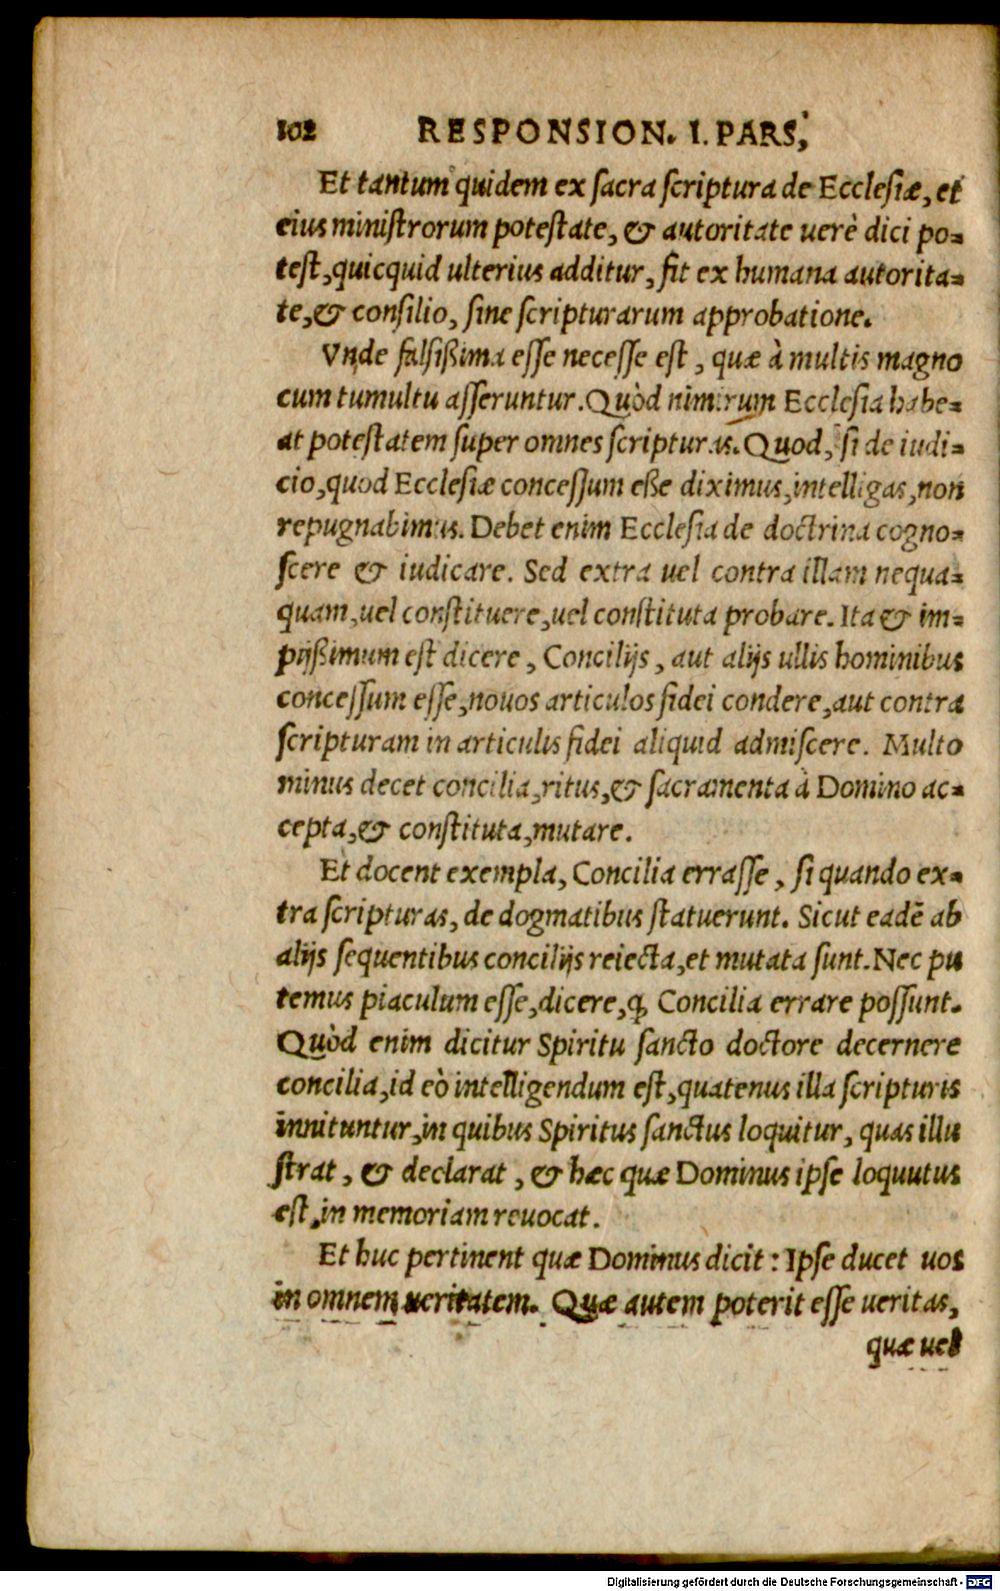 102 RESPONSION. I. PARS,
Et tantum quidem ex sacra scriptura de Ecclesiæ, et
eius ministrorum potestate, & autoritate uerè dici po-
test, quicquid ulterius additur, fit ex humana autorita-
te, & consilio, sine scripturarum approbatione.
Vnde falsißima esse necesse est, quæ à multis magno
cum tumultu asseruntur. Quòd nimirum Ecclesia habe-
at potestatem super omnes scripturas. Quod, si de iudi-
cio, quod Ecclesiæ concessum eße diximus, intelligas, non
repugnabimus. Debet enim Ecclesia de doctrina cogno-
scere & iudicare. Sed extra uel contra illam nequa-
quam, uel constituere, uel constituta probare. Ita & im-
pijßimum est dicere, Concilijs, aut alijs ullis hominibus
concessum esse, nouos articulos fidei condere, aut contra
scripturam in articulis fidei aliquid admiscere. Multo
minus decet concilia, ritus, & sacramenta à Domino ac-
cepta, & constituta, mutare.
Et docent exempla, Concilia errasse, si quando ex-
tra scripturas, de dogmatibus statuerunt. Sicut eadē ab
alijs sequentibus concilijs reiecta, et mutata sunt. Nec pu
temus piaculum esse, dicere, ꝙ Concilia errare possunt.
Quòd enim dicitur Spiritu sancto doctore decernere
concilia, id eò intelligendum est, quatenus illa scripturis
innituntur, in quibus Spiritus sanctus loquitur, quas illu
strat, & declarat, & hæc quæ Dominus ipse loquutus
est, in memoriam reuocat.
Et huc pertinent quæ Dominus dicit: Ipse ducet uos
in omnem ueritatem. Quæ autem poterit esse ueritas,
quæ uel
Digitalisierung gefördert durch die Deutsche Forschungsgemeinschaft - DFG